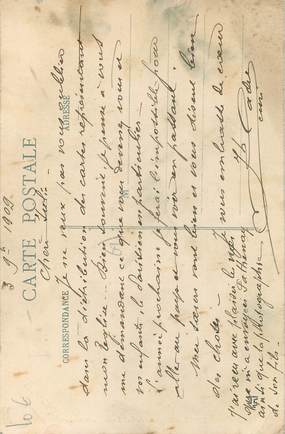 3 9bre 1909
CARTE POSTALE
CORRESPONDANCE
ADRESSE
Je ne veux pas vous oublier
dans la distribution des cartes représentant
mon Eglise. Bien souvent je pense à vous
me demandant ce que vous devenez vous et
vos enfants, le Parisien en particulier.
L'année prochaine je ferai l'impossible pour
aller au pays et vous voir en passant.
Mes sœurs vont bien et vous disent bien
des choses.
Je vous embrasse de cœur
J'ai reçu avec plaisir le
que m'a envoyée Parthenay
ainsi que la photographie
de son fils.